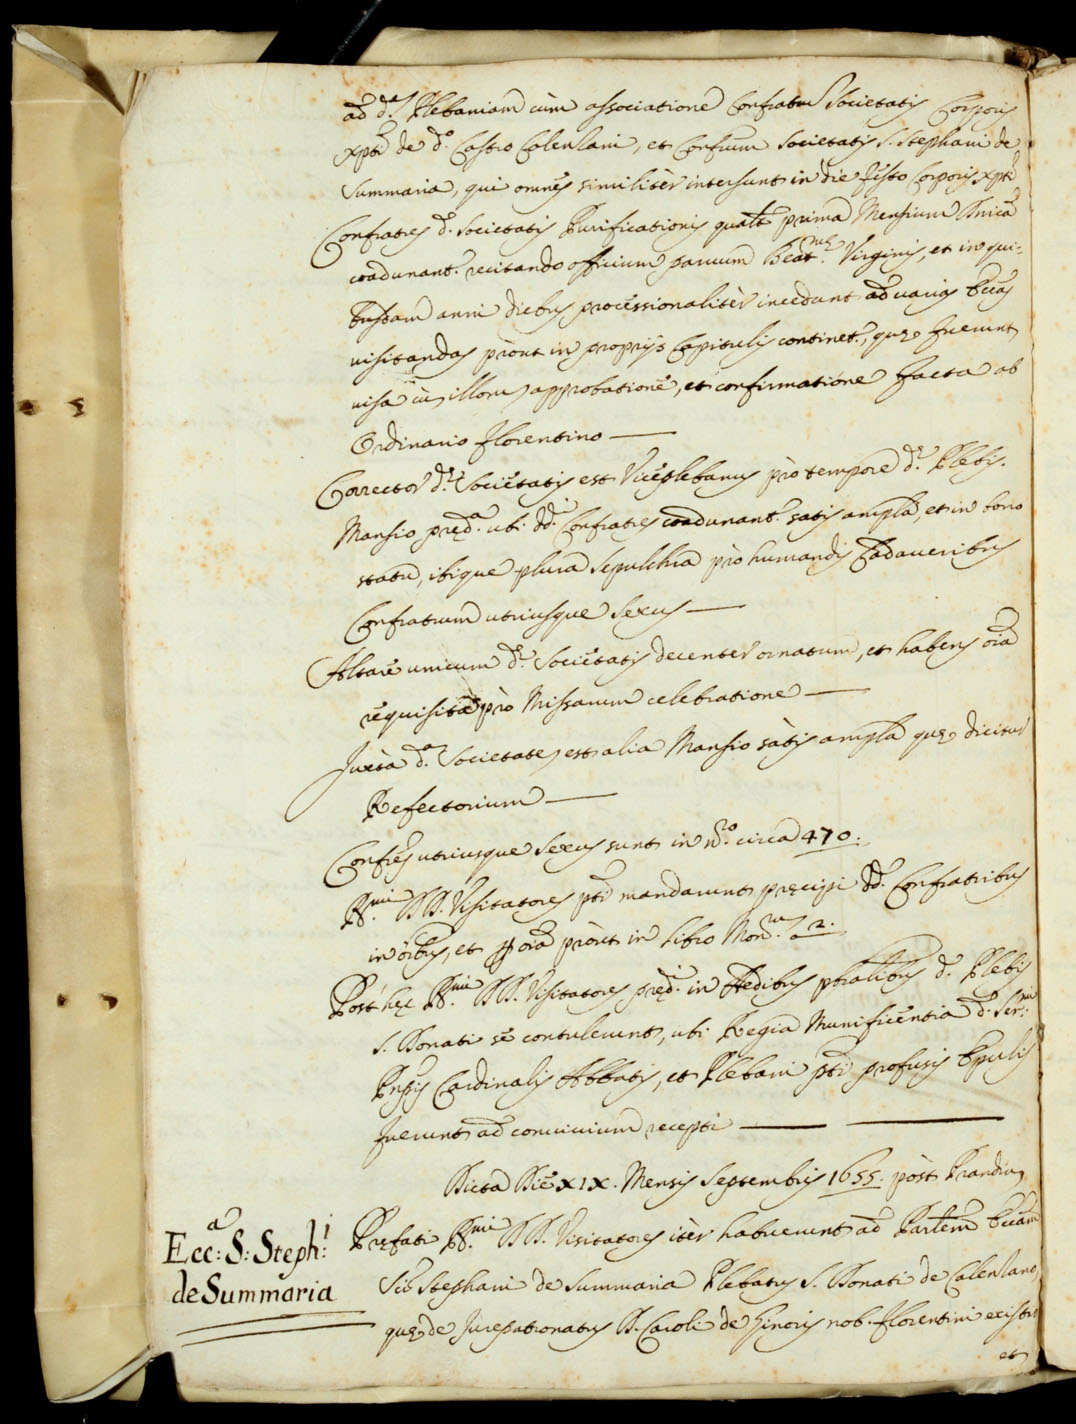 ad d.ª Plebaniam cùm associatione Confratrũ Societatis Corporis
xpti de d.º Castro Calenzani, et Confrum Societatis S. Stephani de
Summaria, qui omnes similitèr intersunt in die festo Corporis xpti
Confratres d.ę Societatis Purificationis qualt prima Mensium Dnica
coadunant.r recitando officium paruum Beat.mę Virginis, et in qui-
busdam anni diebus processionalitèr incedunt ad varias Eccas
visitandas prout in proprijs Capitulis continet.r, quę fuerunt
visa cũ illorũ approbatione, et confirmatione facta ab
Ordinario Florentino —
Corrector d.ę Societatis est Viceplebanus prò tempore d.ę Plebis.
Mansio pręd.ª ubi dd.i Confratres coadunant.r satis ampla, et in bono
statu, ibique plura sepulchra prò humandis Cadaveribus
Confratrum utriusque sexus —
Altare unicum d.ę Societatis decenter ornatum, et habens oĩa
requisita prò Missarum celebratione —
Juxta d.ª Societatẽ est alia Mansio sàtis ampla quę dicitur
Refectorium —
Confres utriusque sexus sunt in N.º circa 470:
R.mi DD. Visitatores pti mandarunt pręcipi dd. Confratribus
in oĩbus, et p oĩa prout in libro Mon.m 2.
Post hęc R.mi DD. Visitatores pręd.i in Aedibus pbralibus d.ę Plebis
S. Donati se contulerunt, ubi Regia Munificentia d. Ser.mi
Prĩpis Cardinalis Abbatis, et Plebani pti profusis Epulis
fuerunt ad convivium recepti —
Dicta Die XIX. Mensis Septembris 1655. pòst Prandiũ
Ecc:ª S: Steph:i
de Summaria
Pręfati R.mi DD. Visitatores itèr habuerunt ad Parlem Eccam
Sci Stephani de Summaria Plebatus S. Donati de Calenzano,
quę de Jurepatronatus D. Caroli de Ginoris nob. Florentini existit
et